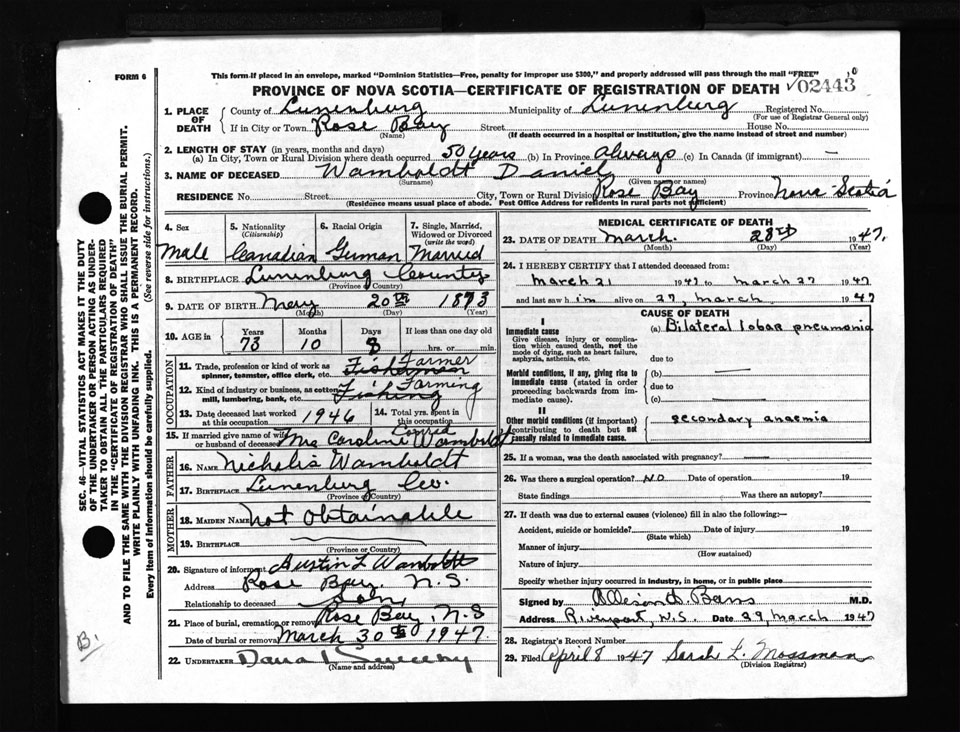 FORM 6
This form if placed in an envelope, marked "Dominion Statistics—Free, penalty for improper use $300," and properly addressed will pass through the mail "FREE"
PROVINCE OF NOVA SCOTIA—CERTIFICATE OF REGISTRATION OF DEATH
02443
1. PLACE OF DEATH
County of Lunenburg Municipality of Lunenburg Registered No.
(For use of Registrar General only)
If in City or Town Rose Bay Street House No.
(Name) (If death occurred in a hospital or institution, give the name instead of street and number)
2. LENGTH OF STAY (in years, months and days)
(a) In City, Town or Rural Division where death occurred 50 years (b) In Province always (c) In Canada (if immigrant) —
3. NAME OF DECEASED Wamboldt Daniel
(Surname) (Given name or names)
RESIDENCE No. Street City, Town or Rural Division Rose Bay Province Nova Scotia
(Residence means usual place of abode. Post Office Address for residents in rural parts not sufficient)
4. Sex
Male
5. Nationality
(Citizenship)
Canadian
6. Racial Origin
German
7. Single, Married, Widowed or Divorced
(write the word)
Married
8. BIRTHPLACE Lunenburg County
(Province or Country)
9. DATE OF BIRTH May 20th 1873
(Month) (Day) (Year)
10. AGE in
Years Months Days If less than one day old
73 10 8 hrs. or min.
OCCUPATION
11. Trade, profession or kind of work as Fisherman Farmer
spinner, teamster, office clerk, etc.
12. Kind of industry or business, as cotton Fishing Farming
mill, lumbering, bank, etc.
13. Date deceased last worked at this occupation 1946
14. Total yrs. spent in this occupation
15. If married give name of wife or husband of deceased Mrs Caroline Wamboldt
FATHER
16. NAME Nicholis Wamboldt
17. BIRTHPLACE Lunenburg Co.
(Province or Country)
MOTHER
18. MAIDEN NAME Not Obtainable
19. BIRTHPLACE
(Province or Country)
20. Signature of informant Austin L Wamboldt
Address Rose Bay, N.S.
Relationship to deceased Son
21. Place of burial, cremation or removal Rose Bay, N.S
Date of burial or removal March 30th 1947
22. UNDERTAKER Dana Sweeny
(Name and address)
MEDICAL CERTIFICATE OF DEATH
23. DATE OF DEATH March. 28th 1947.
(Month) (Day) (Year)
24. I HEREBY CERTIFY that I attended deceased from:
March 21 1947 to March 27 1947
and last saw him alive on 27, March 1947
CAUSE OF DEATH
I
Immediate cause
Give disease, injury or complication which caused death, not the mode of dying, such as heart failure, asphyxia, asthenia, etc.
(a) Bilateral lobar pneumonia
due to
Morbid conditions, if any, giving rise to immediate cause (stated in order proceeding backwards from immediate cause).
(b)
due to
(c)
II
Other morbid conditions (if important) contributing to death but not causally related to immediate cause.
secondary anaemia
25. If a woman, was the death associated with pregnancy?
26. Was there a surgical operation? No Date of operation 19
State findings Was there an autopsy?
27. If death was due to external causes (violence) fill in also the following:—
Accident, suicide or homicide? Date of injury 19
(State which)
Manner of injury
(How sustained)
Nature of injury
Specify whether injury occurred in industry, in home, or in public place
Signed by M.D.
Address Riverport, N.S. Date 29, March 1947
28. Registrar's Record Number
29. Filed April 8 1947 Sarah L. Mossman
(Division Registrar)
SEC. 46—VITAL STATISTICS ACT MAKES IT THE DUTY
OF THE UNDERTAKER OR PERSON ACTING AS UNDER-
TAKER TO OBTAIN ALL THE PARTICULARS REQUIRED
IN THE "CERTIFICATE OF REGISTRATION OF DEATH"
AND TO FILE THE SAME WITH THE DIVISION REGISTRAR WHO SHALL ISSUE THE BURIAL PERMIT.
WRITE PLAINLY WITH UNFADING INK. THIS IS A PERMANENT RECORD.
Every item of information should be carefully supplied. (See reverse side for instructions.)
B.